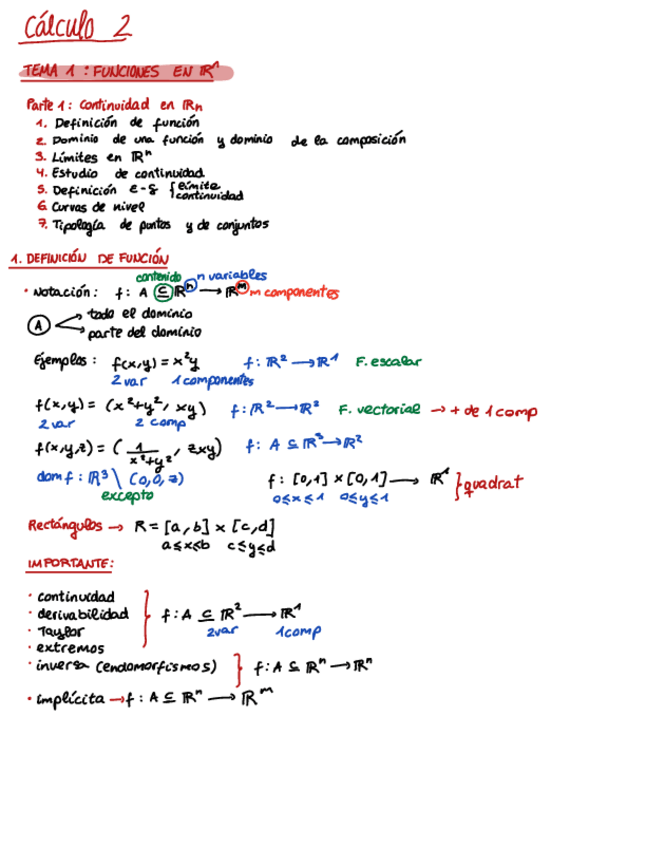 Cálculo 2
TEMA 1 : FUNCIONES EN ℝ¹
Parte 1: Continuidad en ℝn
1. Definición de función
2. Dominio de una función y dominio de la composición
3. Límites en ℝⁿ
4. Estudio de continuidad
5. Definición ε-δ { límite
continuidad
6. Curvas de nivel
7. Tipología de puntos y de conjuntos
1. DEFINICIÓN DE FUNCIÓN
contenido n variables
· Notación: f: A ⊆ ℝⁿ → ℝᵐ m componentes
A todo el dominio
parte del dominio
Ejemplos: f(x,y) = x²y f: ℝ² → ℝ¹ F. escalar
2 var 1 componentes
f(x,y) = (x²+y², xy) f: ℝ² → ℝ² F. vectorial → + de 1 comp
2 var 2 comp
f(x,y,z) = (1/(x²+y²), zxy) f: A ⊆ ℝ³ → ℝ²
dom f: ℝ³ \ (0,0,z) f: [0,1] × [0,1] → ℝ¹ } quadrat
excepto 0≤x≤1 0≤y≤1
Rectángulos → R = [a,b] × [c,d]
a≤x≤b c≤y≤d
IMPORTANTE:
· continuidad
· derivabilidad } f: A ⊆ ℝ² → ℝ¹
· Taylor 2var 1comp
· extremos
· inversa (endomorfismos) } f: A ⊆ ℝⁿ → ℝⁿ
· implícita → f: A ⊆ ℝⁿ → ℝᵐ